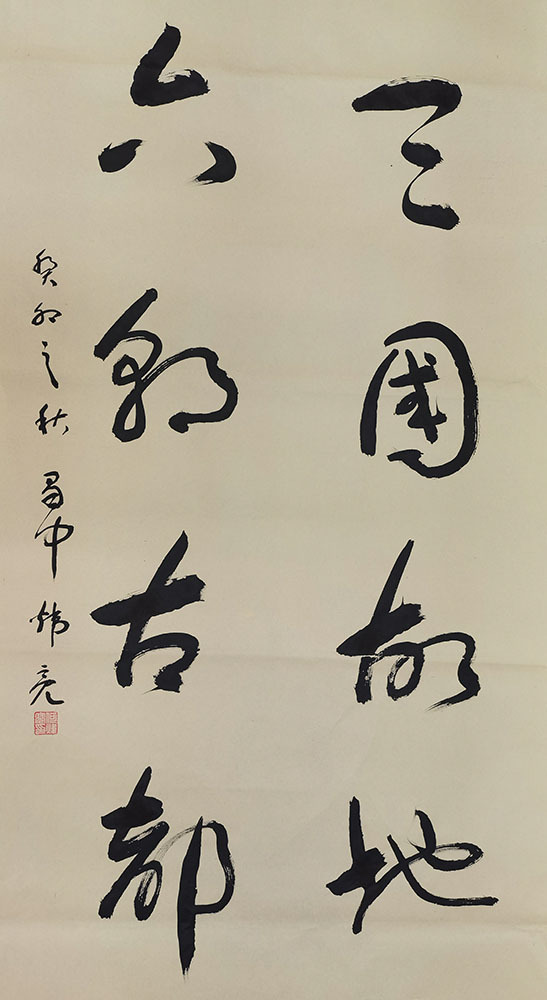 三國故地
六朝古都
癸卯之秋 蜀中 炜亮